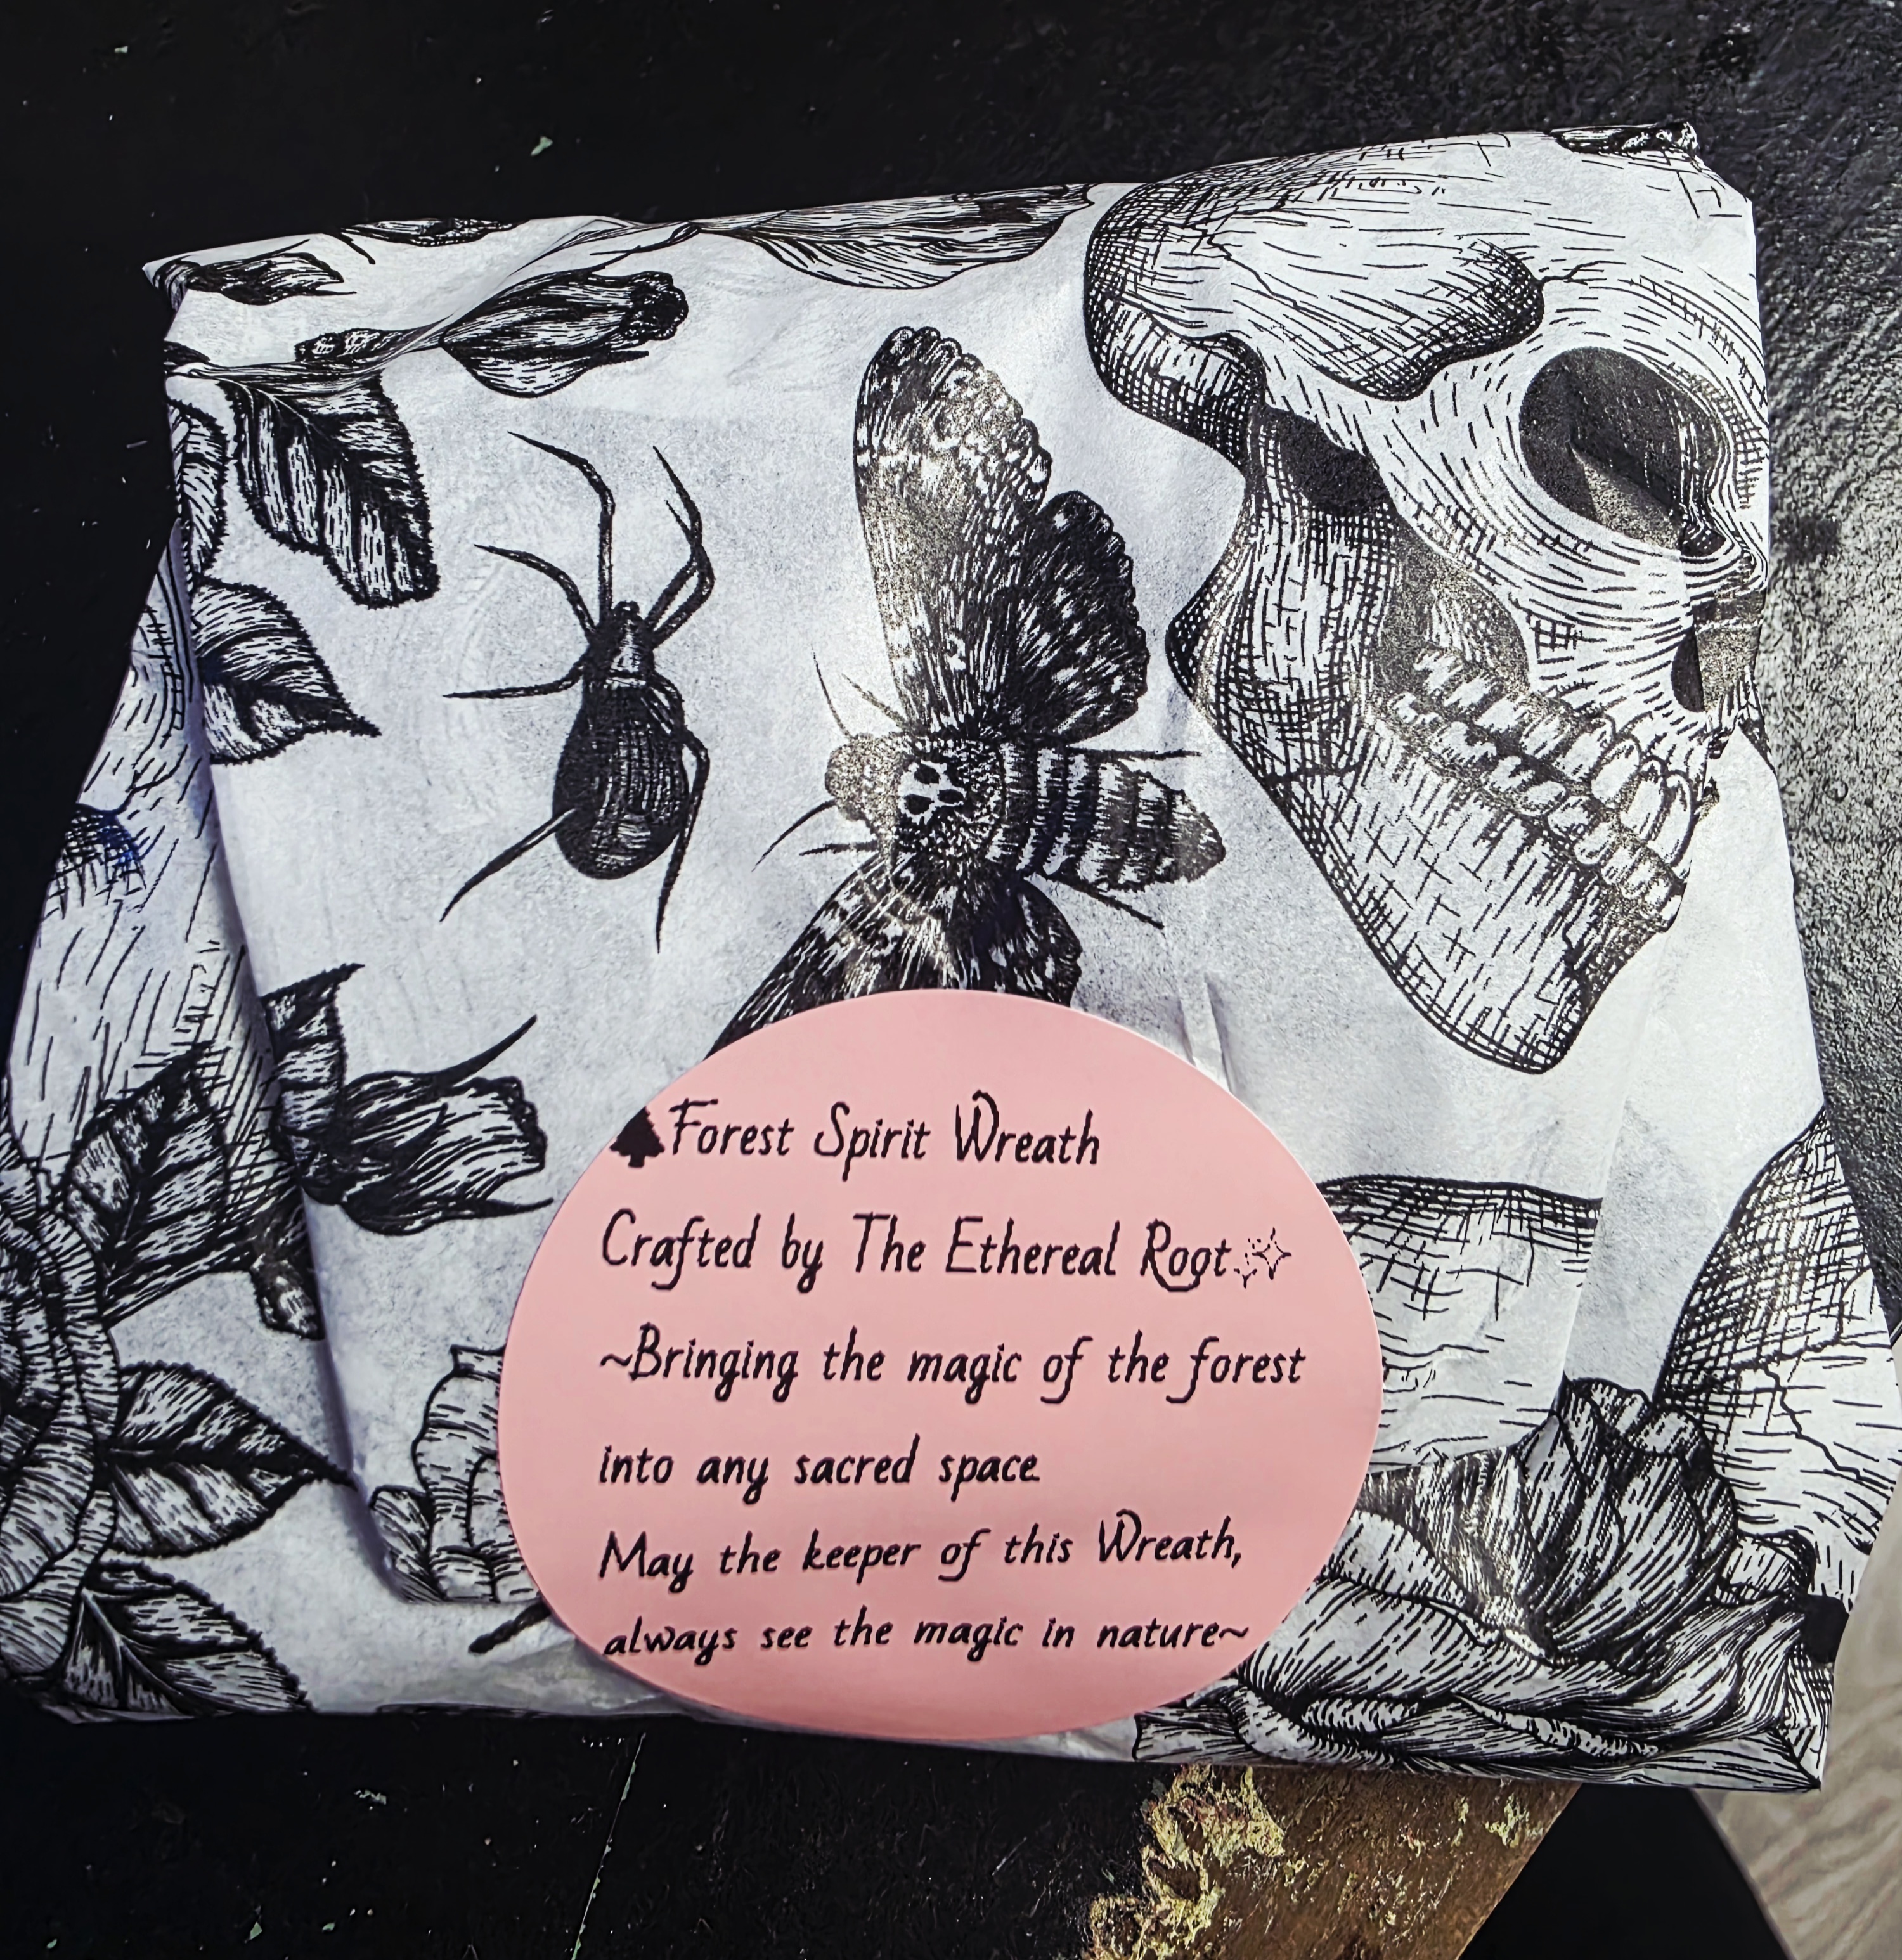 🌲Forest Spirit Wreath
Crafted by The Ethereal Root✨
~Bringing the magic of the forest
into any sacred space
May the keeper of this Wreath,
always see the magic in nature~